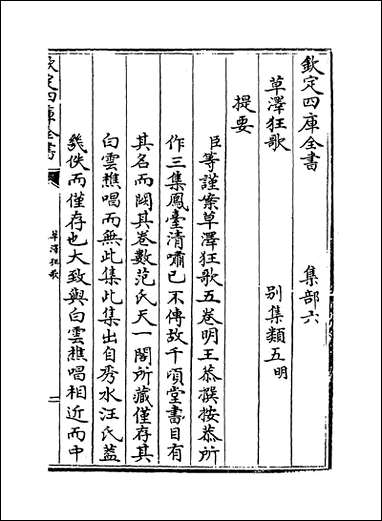 欽定四庫全書　集部六
草澤狂歌　別集類五明
提要
臣等謹案草澤狂歌五卷明王恭撰按恭所
作三集鳳臺清嘯已不傳故千頃堂書目有
其名而闕其卷數范氏天一閣所藏僅存其
白雲樵唱而無此集此集出自秀水汪氏蓋
幾佚而僅存也大致與白雲樵唱相近而中
欽定四庫全書
草澤狂歌
一